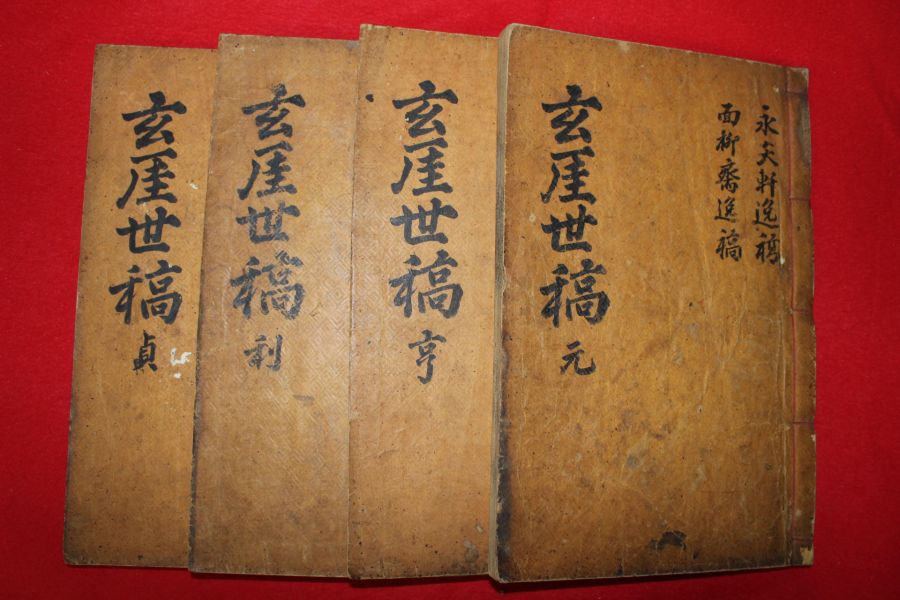 永矢軒逸稿
面柳齋逸稿
玄厓世稿 元
玄厓世稿 亨
玄厓世稿 利
玄厓世稿 貞